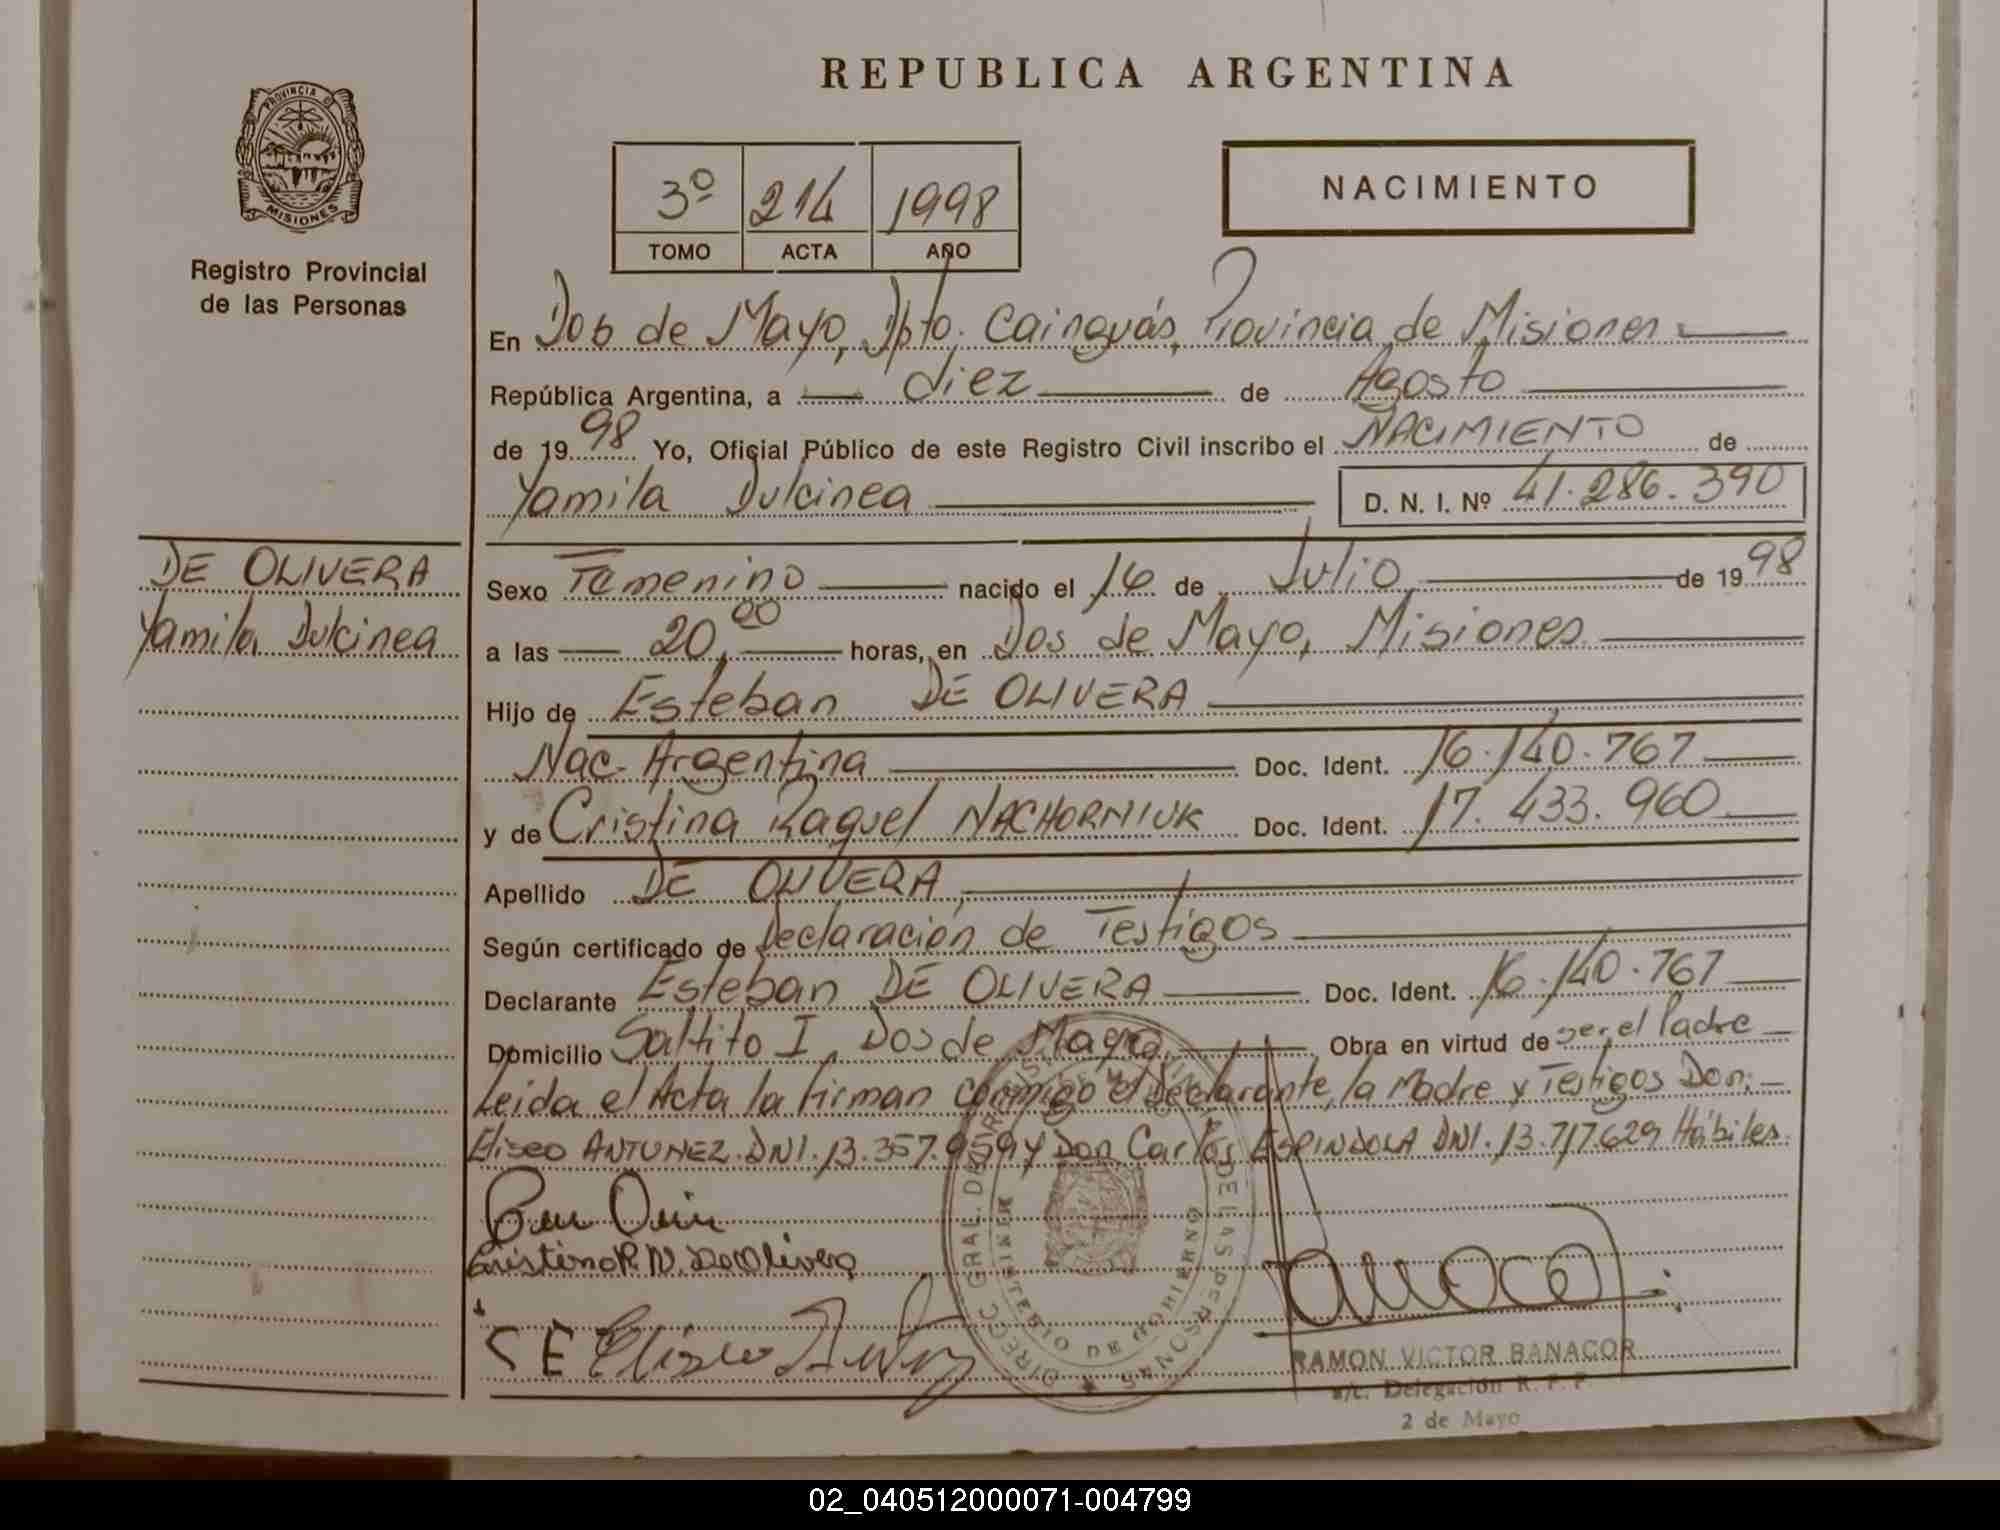 REPUBLICA ARGENTINA
PROVINCIA D
MISIONES
Registro Provincial
de las Personas
3º 214 1998
TOMO ACTA AÑO
NACIMIENTO
En Dos de Mayo, Dpto. Cainguás, Provincia de Misiones
República Argentina, a diez de Agosto
de 1998 Yo, Oficial Público de este Registro Civil inscribo el NACIMIENTO de
Yamila Dulcinea D. N. I. Nº 41.286.390
DE OLIVERA
Yamila Dulcinea
Sexo Femenino nacido el 16 de Julio de 1998
a las 20,00 horas, en Dos de Mayo, Misiones
Hijo de Esteban DE OLIVERA
Nac. Argentina Doc. Ident. 16.140.767
y de Cristina Raquel NACHORNIUK Doc. Ident. 17.433.960
Apellido DE OLIVERA,
Según certificado de Declaración de Testigos
Declarante Esteban DE OLIVERA Doc. Ident. 16.140.767
Domicilio Saltito I, Dos de Mayo, Obra en virtud de ser el Padre
Leida el Acta la firman conmigo el Declarante, la Madre y Testigos Don:
Eliseo ANTUNEZ DNI. 13.357.959 y Don Carlos ESPINDOLA DNI. 13.717.629 Hábiles.
Cristina R. N. De Olivera
C E Eliseo Antunez
DIRECC. GRAL. DEL DE LAS PERSONAS
MINISTERIO DE GOBIERNO
RAMON VICTOR BANACOR
a/c. Delegación R. P. P.
2 de Mayo
02_040512000071-004799